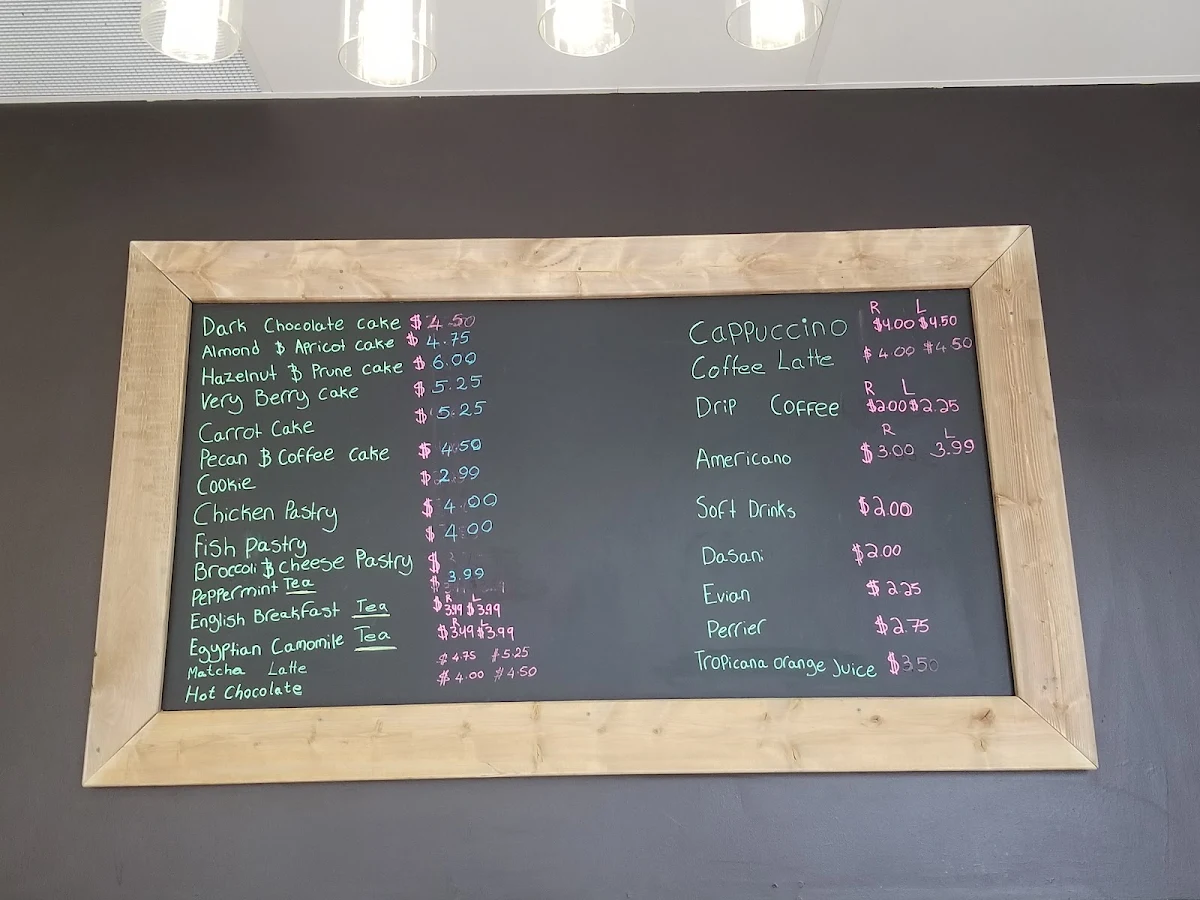 Dark Chocolate cake $4.50
Almond & Apricot cake $4.75
Hazelnut & Prune cake $6.00
Very Berry Cake $5.25
Carrot Cake $5.25
Pecan & Coffee cake $4.50
Cookie $2.99
Chicken Pastry $4.00
Fish Pastry $4.00
Broccoli & Cheese Pastry $
Peppermint Tea $3.99
R L
English Breakfast Tea $3.99 $3.99
R L
Egyptian Camomile Tea $3.49 $3.99
Matcha Latte $4.75 $5.25
Hot Chocolate $4.00 $4.50
R L
Cappuccino $4.00 $4.50
Coffee Latte $4.00 $4.50
R L
Drip Coffee $2.00 $2.25
R L
Americano $3.00 3.99
Soft Drinks $2.00
Dasani $2.00
Evian $2.25
Perrier $2.75
Tropicana Orange Juice $3.50